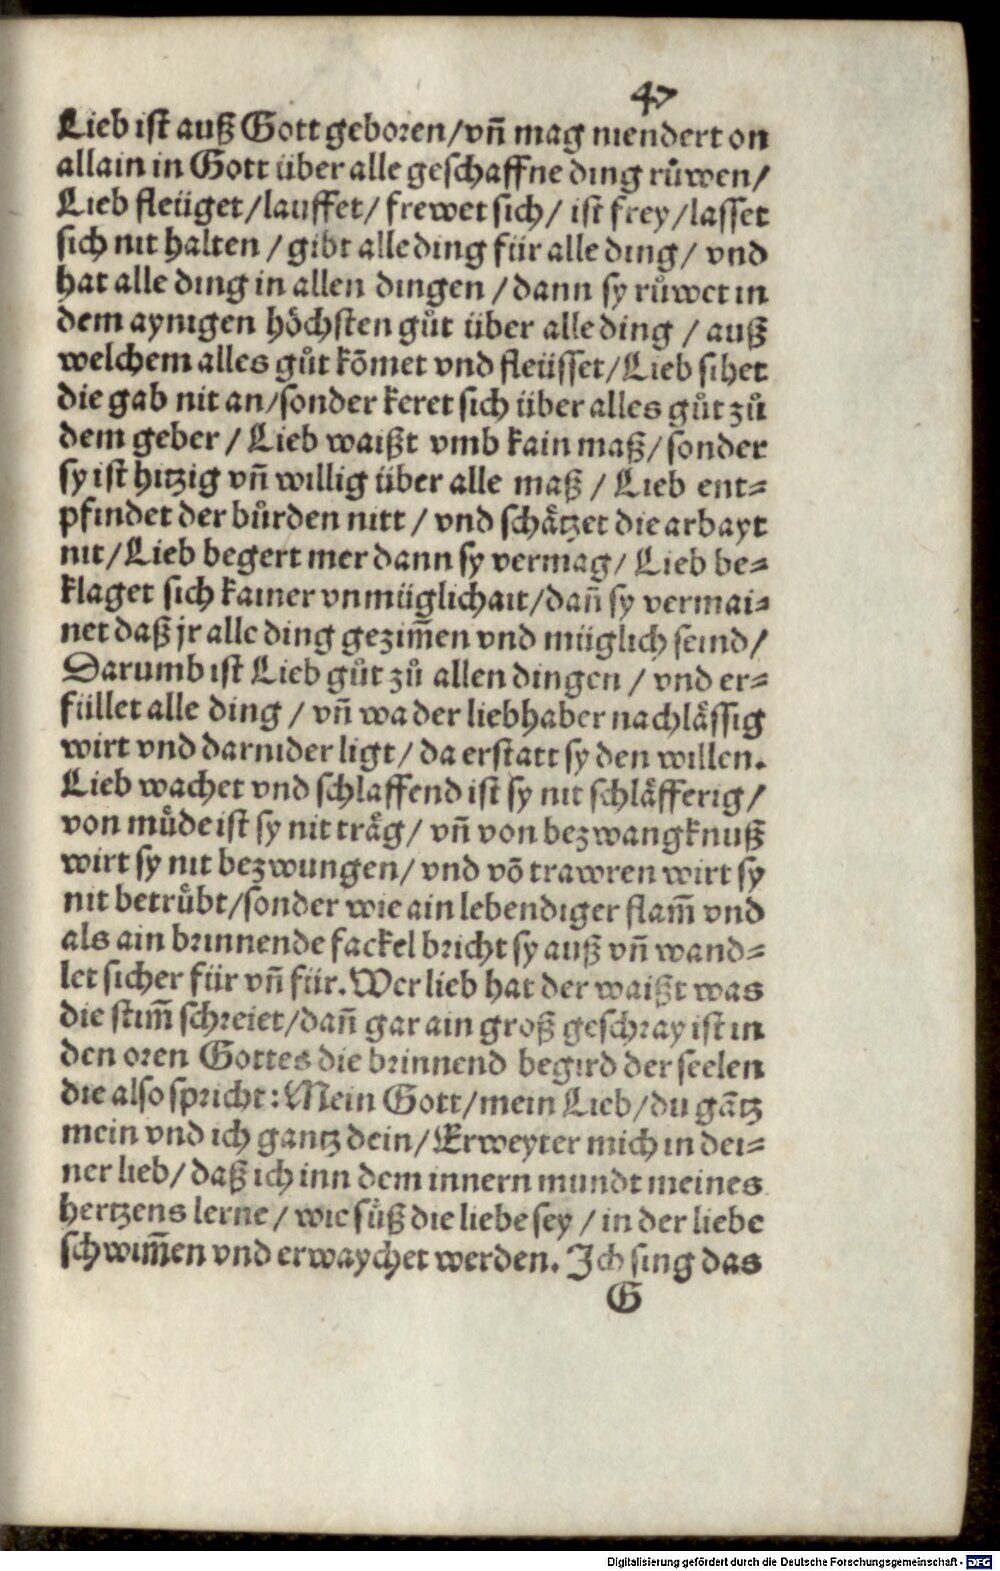 47
Lieb ist auß Gott geboren/vñ mag niendert on
allain in Gott über alle geschaffne ding růwen/
Lieb fleüget/lauffet/frewet sich/ist frey/lasset
sich nit halten/gibt alle ding für alle ding/vnd
hat alle ding in allen dingen/dann sy růwet in
dem aynigen höchsten gůt über alle ding/auß
welchem alles gůt kõmet vnd fleüsset/Lieb sihet
die gab nit an/sonder keret sich über alles gůt zů
dem geber/Lieb waißt vmb kain maß/sonder
sy ist hitzig vñ willig über alle maß/Lieb ent=
pfindet der bůrden nitt/vnd schätzet die arbayt
nit/Lieb begert mer dann sy vermag/Lieb be=
klaget sich kainer vnmüglichait/dañ sy vermai=
net daß jr alle ding gezim̃en vnd müglich seind/
Darumb ist Lieb gůt zů allen dingen/vnd er=
füllet alle ding/vñ wa der liebhaber nachlässig
wirt vnd darnider ligt/da erstatt sy den willen.
Lieb wachet vnd schlaffend ist sy nit schläfferig/
von müde ist sy nit träg/vñ von bezwangknuß
wirt sy nit bezwungen/vnd võ trawren wirt sy
nit betrübt/sonder wie ain lebendiger flam̃ vnd
als ain brinnende fackel bricht sy auß vñ wand=
let sicher für vñ für. Wer lieb hat der waißt was
die stim̃ schreiet/dañ gar ain groß geschray ist in
den oren Gottes die brinnend begird der seelen
die also spricht: Mein Gott/mein Lieb/du gãtz
mein vnd ich gantz dein/Erweyter mich in dei=
ner lieb/daß ich inn dem innern mundt meines
hertzens lerne/wie süß die liebe sey/in der liebe
schwim̃en vnd erwaychet werden. Ich sing das
G
Digitalisierung gefördert durch die Deutsche Forschungsgemeinschaft - DFG